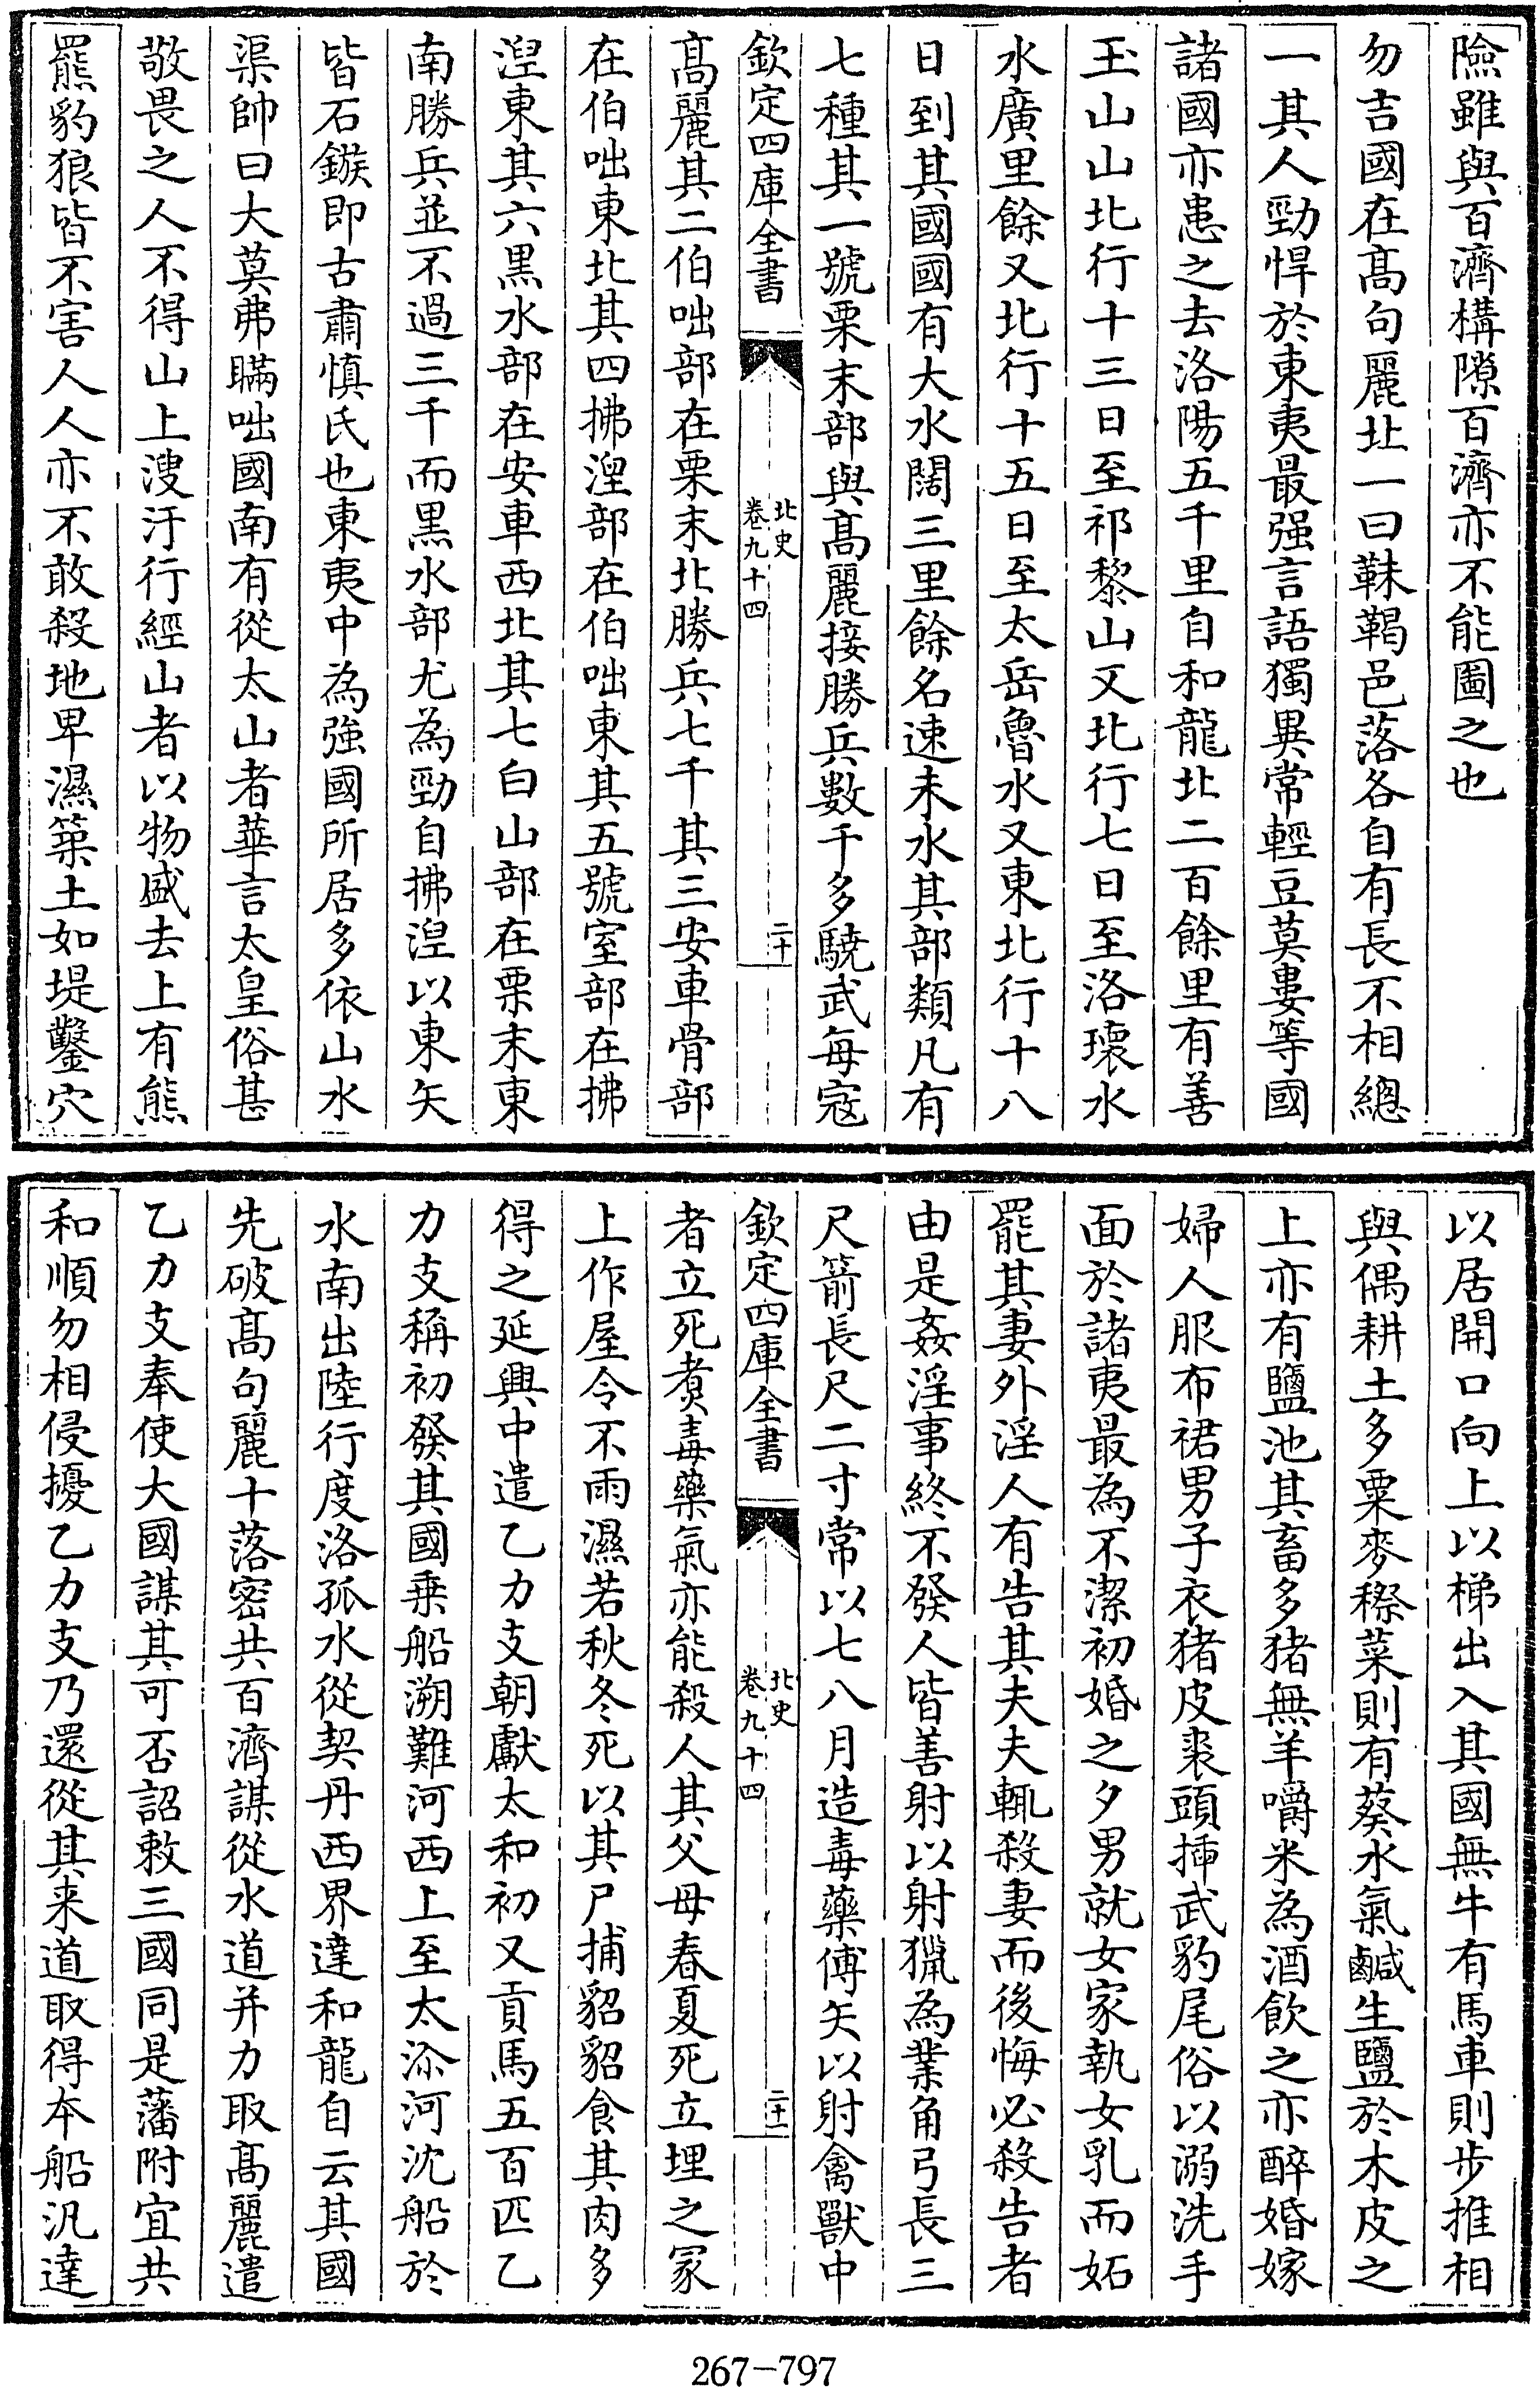 險雖與百濟構隙百濟亦不能圖之也
勿吉國在髙句麗北一曰靺鞨邑落各自有長不相總
一其人勁悍於東夷最强言語獨異常輕豆莫婁等國
諸國亦患之去洛陽五千里自和龍北二百餘里有善
玉山山北行十三日至祁黎山又北行七日至洛瓌水
水廣里餘又北行十五日至太岳魯水又東北行十八
日到其國國有大水闊三里餘名速末水其部類凡有
七種其一號栗末部與髙麗接勝兵數千多驍武每寇
欽定四庫全書
北史
卷九十四
二十
髙麗其二伯咄部在栗末北勝兵七千其三安車骨部
在伯咄東北其四拂湼部在伯咄東其五號室部在拂
湼東其六黒水部在安車西北其七白山部在栗末東
南勝兵並不過三千而黒水部尤為勁自拂湼以東矢
皆石鏃即古肅慎氏也東夷中為強國所居多依山水
渠帥曰大莫弗瞞咄國南有從太山者華言太皇俗甚
敬畏之人不得山上溲汙行經山者以物盛去上有熊
羆豹狼皆不害人人亦不敢殺地卑濕築土如堤鑿穴
以居開口向上以梯出入其國無牛有馬車則步推相
與偶耕土多粟麥穄菜則有葵水氣鹹生鹽於木皮之
上亦有鹽池其畜多猪無羊嚼米為酒飲之亦醉婚嫁
婦人服布裙男子衣猪皮裘頭揷武豹尾俗以溺洗手
面於諸夷最為不潔初婚之夕男就女家執女乳而妬
罷其妻外淫人有告其夫夫輒殺妻而後悔必殺告者
由是姦淫事終不發人皆善射以射獵為業角弓長三
尺箭長尺二寸常以七八月造毒藥傅矢以射禽獸中
欽定四庫全書
北史
卷九十四
二十一
者立死煑毒藥氣亦能殺人其父母春夏死立埋之冢
上作屋令不雨濕若秋冬死以其尸捕貂貂食其肉多
得之延興中遣乙力支朝獻太和初又貢馬五百匹乙
力支稱初發其國乗船溯難河西上至太沵河沈船於
水南出陸行度洛孤水從契丹西界達和龍自云其國
先破髙句麗十落密共百濟謀從水道并力取髙麗遣
乙力支奉使大國謀其可否詔敕三國同是藩附宜共
和順勿相侵擾乙力支乃還從其来道取得本船汎達
267-797